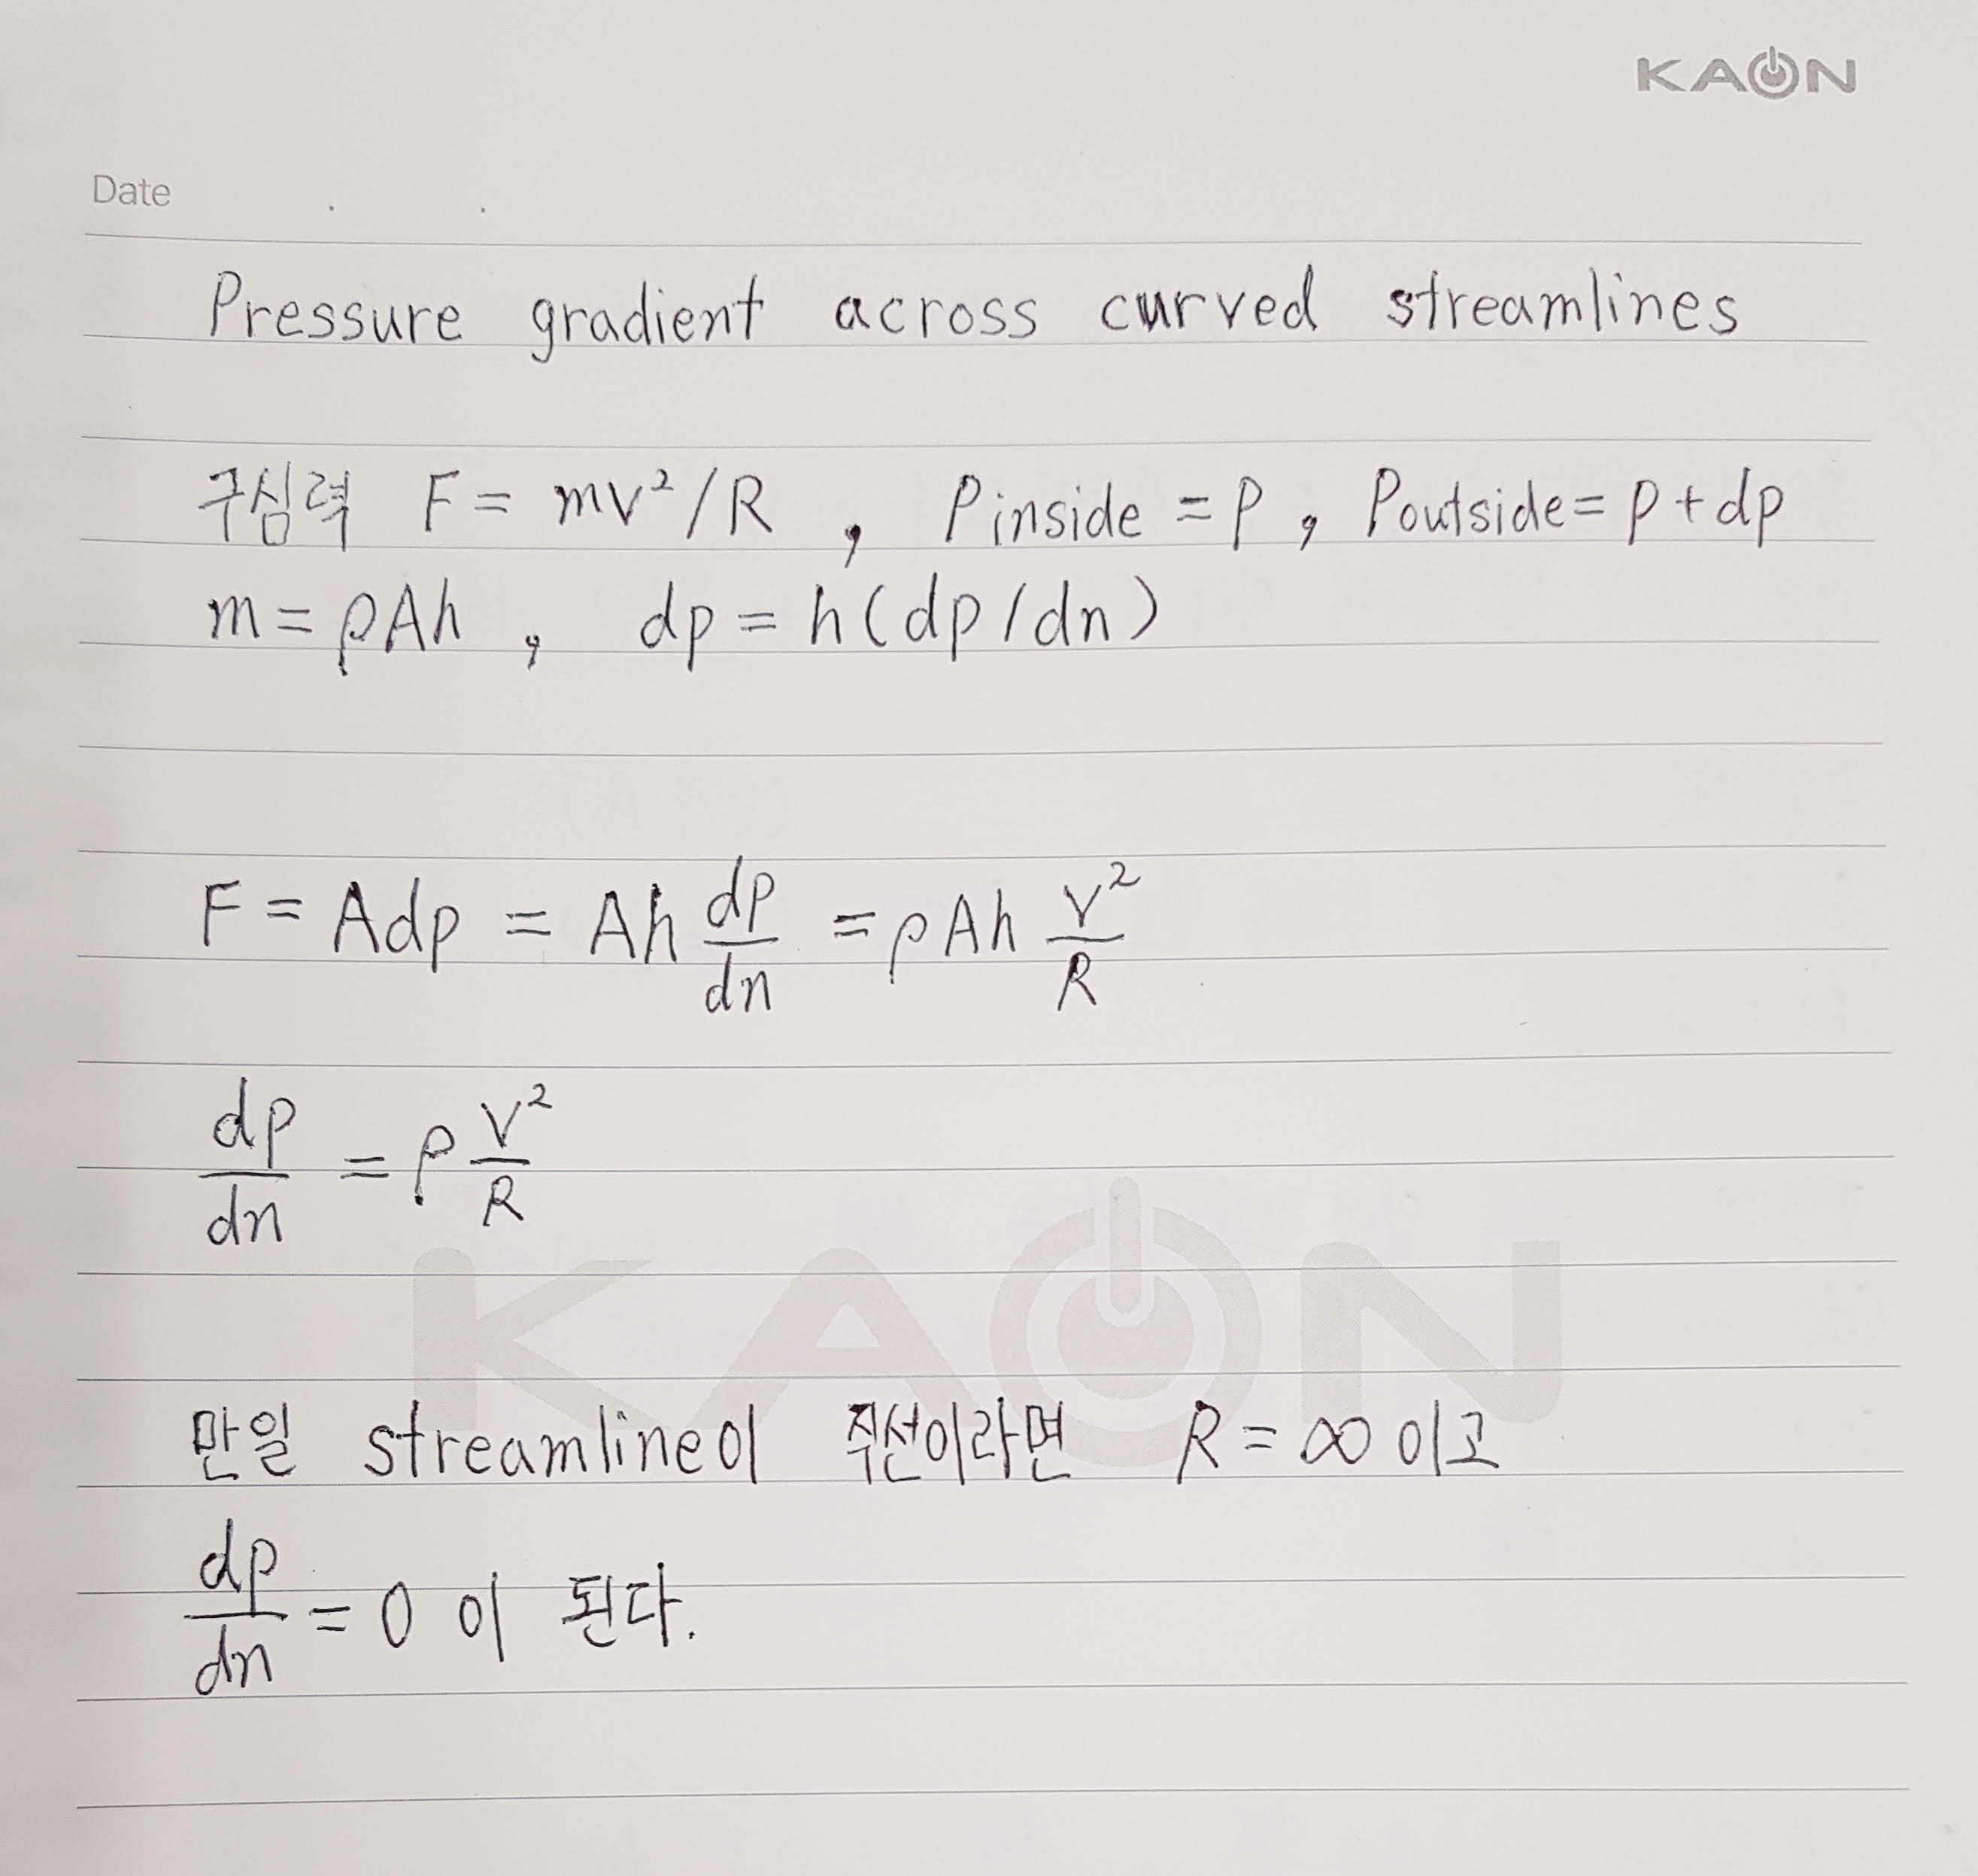 KAON
Date . .
Pressure gradient across curved streamlines
구심력 F = mv²/R , Pinside = P , Poutside = p + dp
m = ρAh , dp = h(dp/dn)
F = Adp = Ah dp/dn = ρAh v²/R
dp/dn = ρ v²/R
KAON
만일 streamline이 직선이라면 R = ∞ 이고
dp/dn = 0 이 된다.